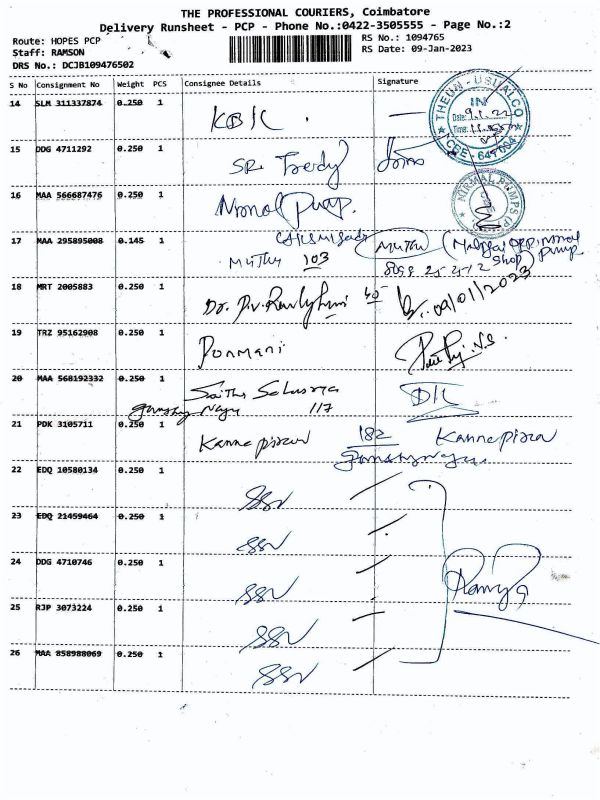 THE PROFESSIONAL COURIERS, Coimbatore
Delivery Runsheet - PCP - Phone No.:0422-3505555 - Page No.:2
Route: HOPES PCP
Staff: RAMSON
DRS No.: DCJB109476502
RS No.: 1094765
RS Date: 09-Jan-2023
S No Consignment No Weight PCS Consignee Details Signature
14 SLM 311337874 0.250 1 KBIC.
IN
Date:
Time:
15 DDG 4711292 0.250 1 SR.
16 MAA 566687476 0.250 1 Nirmal Pump.
NIRMAL PUMPS
17 MAA 295895008 0.145 1 Muthu 103 Muthu
shop) pump
18 MRT 2005883 0.250 1 Dr. P.V. 09/01/2023
19 TRZ 95162908 0.250 1 Ponmani
20 MAA 568192332 0.250 1 117
21 PDK 3105711 0.250 1 Kannapiran 182 Kannapiran
22 EDQ 10580134 0.250 1 SSV
23 EDQ 21459464 0.250 1 SSV
24 DDG 4710746 0.250 1 SSV
25 RJP 3073224 0.250 1 SSV
26 MAA 858988069 0.250 1 SSV